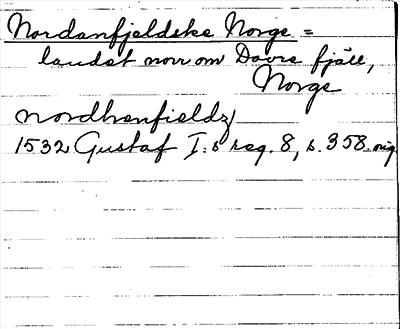 Nordanfjeldske Norge =
landet norr om Dovre fjäll,
Norge
nordhenfieldz
1532 Gustaf I:s reg. 8, s. 358. orig.